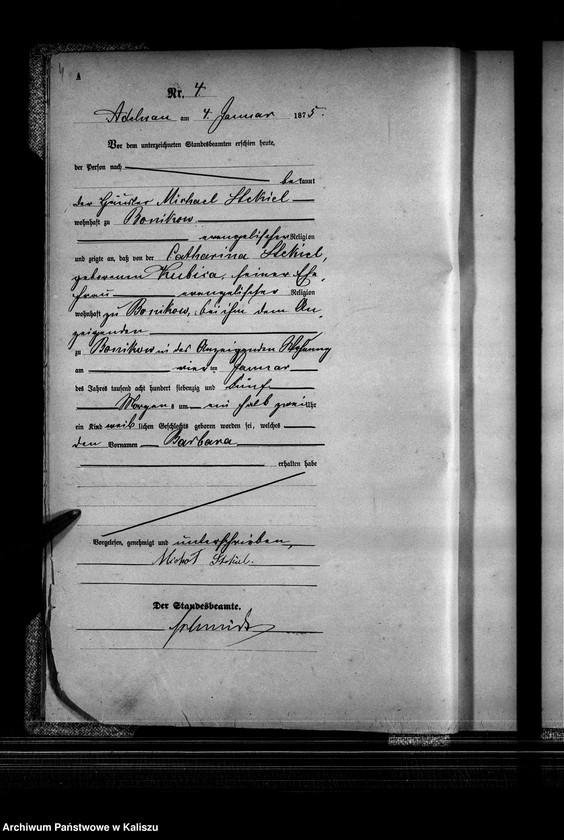 4
A
Nr. 4
Adelnau am 4. Januar 1875.
Vor dem unterzeichneten Standesbeamten erschien heute,
der Person nach
bekannt
der Häusler Michael Stekiel
wohnhaft zu Bonikow
evangelischer Religion
und zeigte an, daß von der Catharina Stekiel,
geborenen Kubica, seiner Ehe-
frau evangelischer Religion
wohnhaft zu Bonikow, bei ihm dem An-
zeigenden
zu Bonikow in des Anzeigenden Wohnung
am vierten Januar
des Jahres tausend acht hundert siebenzig und fünf
Morgens um halb zwei Uhr
ein Kind weiblichen Geschlechts geboren worden sei, welches
den Vornamen Barbara
erhalten habe
Vorgelesen, genehmigt und unterschrieben,
Stekiel.
Der Standesbeamte.
Schmidt
Archiwum Państwowe w Kaliszu